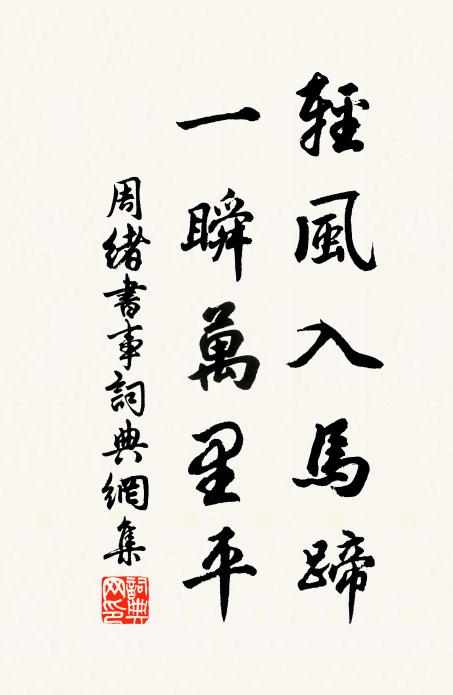 輕風入馬蹄
一瞬萬里平
周緒書事詞典網集
詞典網印